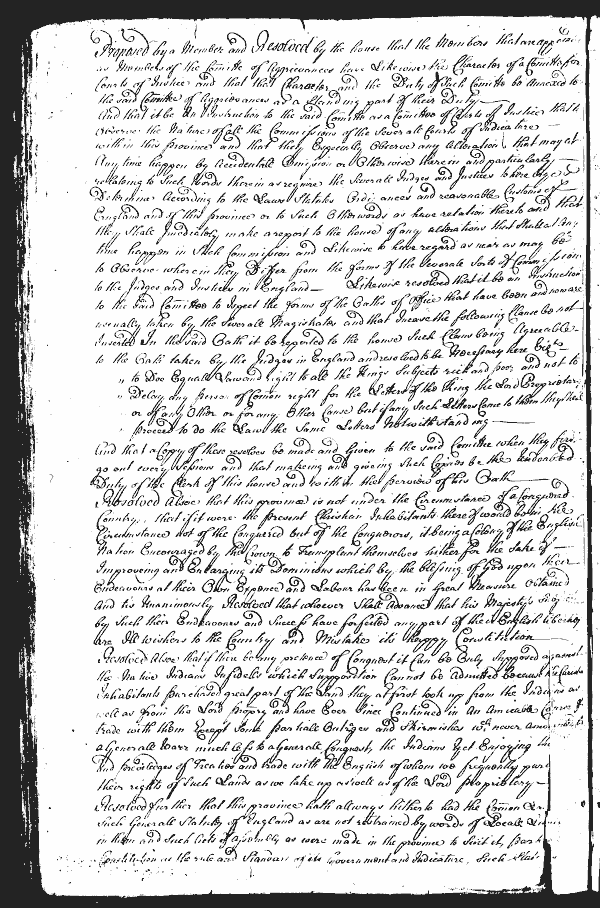 Proposed by a Member and Resolved by the house that the Members that are
as Members of the Comitte of Aggrievances have Likewise the Character of a Comitte for
Courts of Justice and that that Character and the Duty of Such Comitte be Annexed to
the said Comitte of Aggrievances as a Standing part of their Duty
And that it be An Instruction to the said Comitte as a Comittee of Courts of Justice that they
Observe the Nature of all the Commissions of the Severall Courts of Judicature
within this province and that they Especially Observe any Alterations that may at
Any time happen by Accidentall Omission or Otherwise therein and particularly
relateing to Such Words therein as require the Severall Judges and Justices to hear Judge &
Determine According to the Laws Statutes Ordinances and reasonable Customs of
England and of this province or to Such Other words as have relation thereto and that
they Shall Imediately make a report to the house of any alterations that shall at Any
time happen in Such Commission and Likewise to have regard as near as may be
to Observe wherein they Differ from the forms of the Severale Sorts of Commissions
to the Judges and Justices in England Likewise resolved that it be an Instruction
to the said Comittee to Inspect the forms of the Oaths of Office that have been and now are
usually taken by the Severall Magistrates and that Incase the following Clause be not
Inserted In the said Oath it be reported to the house Such Clause being Agreeable
to the Oath taken by the Judges in England and resolved to be Necessary here Vizt
" to Doe Equall Law and right to all the Kings Subjects rich and poor and not to
" Delay any person of Comon right for the Letters of the King the Lord Proprietary
" or of any Other or for any Other Cause but if any Such Letters Come to them they Shall
" proceed to do the Law the Same Letters Notwithstanding
And that a Copy of these resolves be made and Given to the said Comittee when they first
go out every Sessions and that makeing and giveing Such Copies be the Undoubted
Duty of the Clerk of this house and within that perview of his Oath
Resolved Alsoe that this province is not under the Circumstance of a Conquered
Country, that if it were the present Christian Inhabitants thereof would be in the
Circumstance not of the Conquered but of the Conquerors, it being a Colony of the English
Nation Encouraged by the Crown to Transplant themselves hither for the Sake of
Improveing and Enlarging its Dominions which by the blessing of God upon their
Endeavours at their Own Expence and Labour has been in Great Measure Obtained
And tis Unanimously Resolved that whoever Shall Advance that his Majestys
by Such their Endeavours and Success have forfeited any part of their English Libertys
are Ill wishers to the Country and Mistake its happy Constitution
Resolved Alsoe that if there be any pretence of Conquest it Can be Only Supposed against
the Native Indians Infidels which Supposition Cannot be Admitted because the
Inhabitants purchased great part of the Land they at first took up from the Indians as
well as from the Lord Propry and have Ever Since Continued in An Amicable
trade with them Except Some partiall Outrages and Skirmishes wch never
a Generall Warr much less to a Generall Conquest, the Indians yet Enjoying their
and priviledges of Treaties and trade with the English of whom we frequently
their rights of Such Lands as we take up as well as of the Lord Proprietary
Resolved further that this province hath allways hitherto had the Comon
Such Generall Statutes of England as are not restrained by words of Locall
in them and Such Acts of Assembly as were made in the province to Suit its
Constitution as the rule and Standard of its Government and Judicature, Such